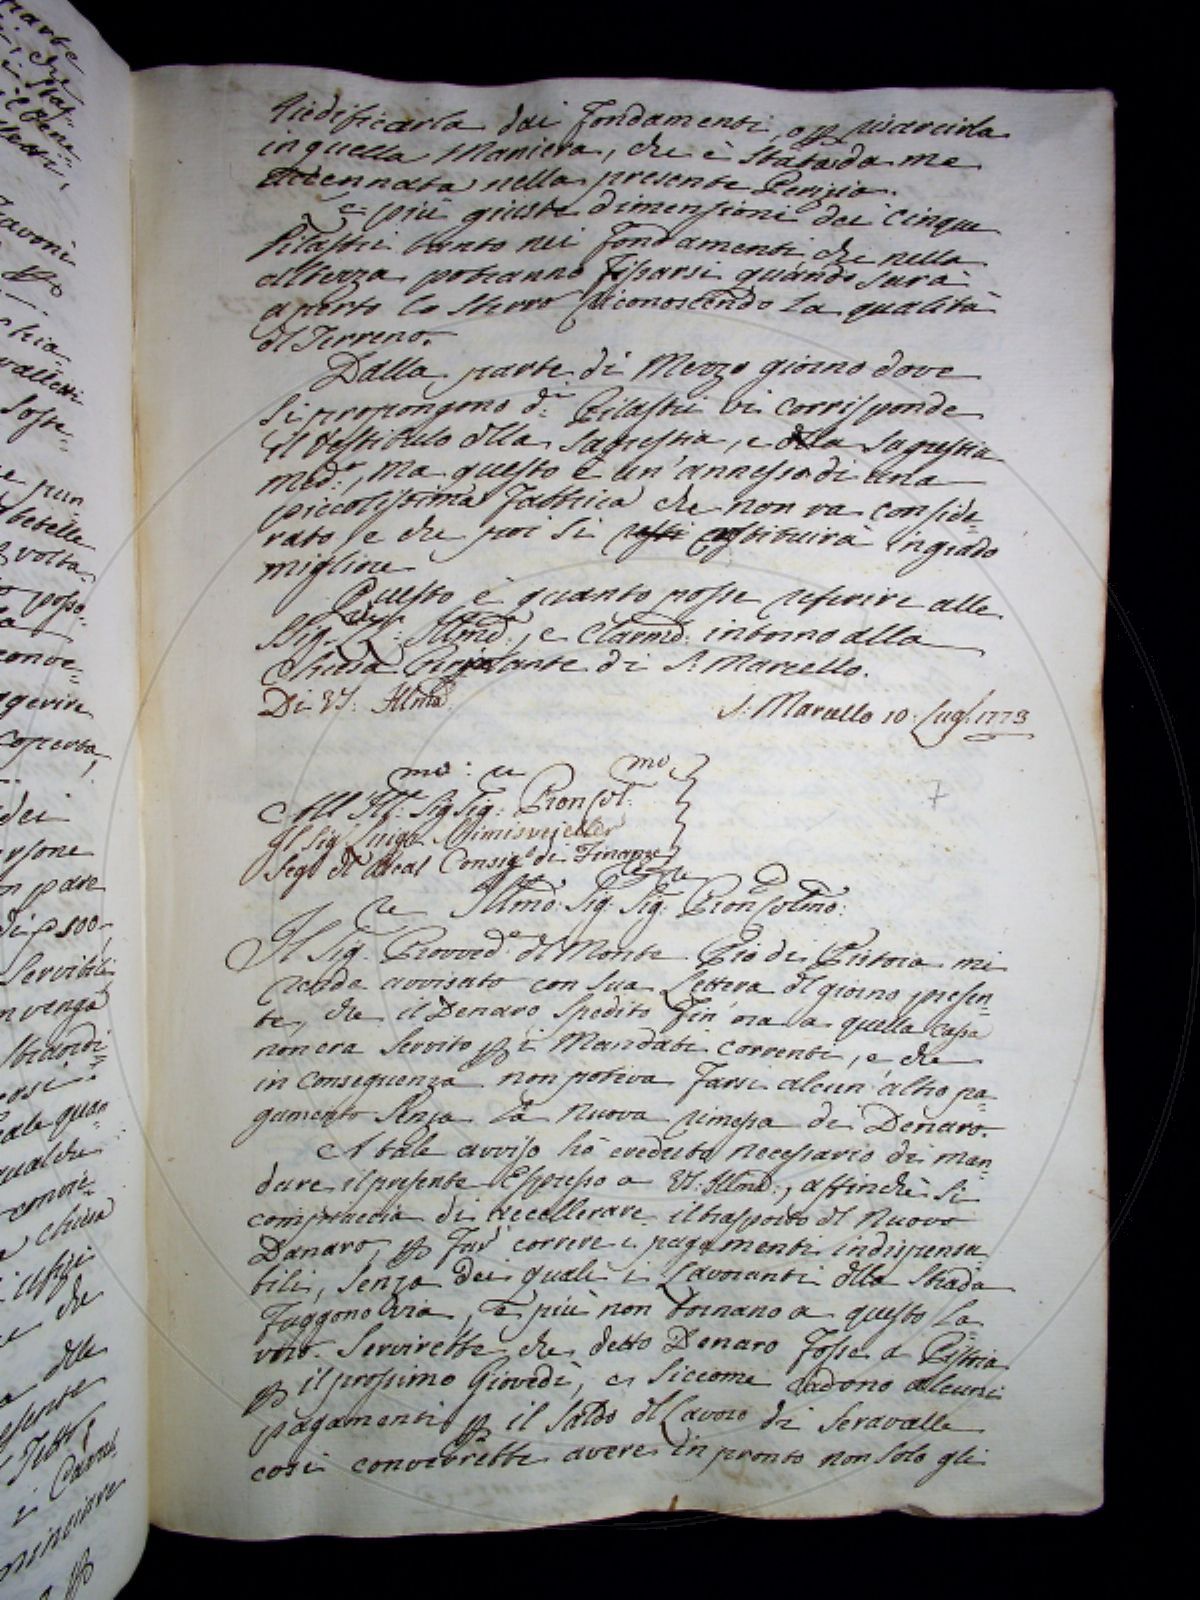 riedificarla dai Fondamenti, o p risarcirla
in quella Maniera, che è stata da me
accennata nella presente Perizia.
e più giuste dimensioni dei cinque
Pilastri tanto nei Fondamenti che nella
alterza potranno Fissarsi quando sarà
aperto lo sterro riconoscendo la qualità
dl Terreno.
Dalla parte di Mezzo giorno dove
si propongono d.i Pilastri vi corrisponde
il Vestibulo dlla Sagrestia, e dlla Sagrestia
med.a, ma questo è un'annesso di una
piccolissima Fabbrica che non va conside=
rato e che poi si restituirà in grado
migliore
Questo è quanto posse referire alle
Sig.rie LL: Illme:, e Clarme: intorno alla
Chiesa Pievata di S. Marcello.
Di VS: Illma
S. Marcello 10: Lug. 1773
mo: re mo
All Ill: Sig Sig: Pron Col:
Il Sig Luigi
Seg. dl Real Consig.o di Finanze
7
Illmo: Sig. Sig: Pron Colmo:
Il Sig. Provved.re dl Monte Pio di Pistoia mi
rende avvisato con sua Lettera dl giorno presen=
te, che il Denaro spedito Fin' ora a quella Cassa
non era servito p i Mandati correnti, e che
in conseguenza non poteva Farsi alcun' altro pa=
gamento senza la nuova rimessa di Denaro.
A tale avviso hò creduto necessario di man=
dare il presente Espresso a VS: Illma:, affinchè si
compiaccia di accellerare il trasporto dl Nuovo
Danaro, p Far correre i pagamenti indispensa
bili, senza dei quali i Lavoranti dlla Strada
Fuggono via, e più non tornano a questo La=
voro. Servirebbe che detto Denaro Fosse a Pistoia
p il prossimo Giovedì, e siccome cadono alcuni
pagamenti p il saldo dl Lavoro di Seravalle
così converrebbe avere in pronto non solo gli